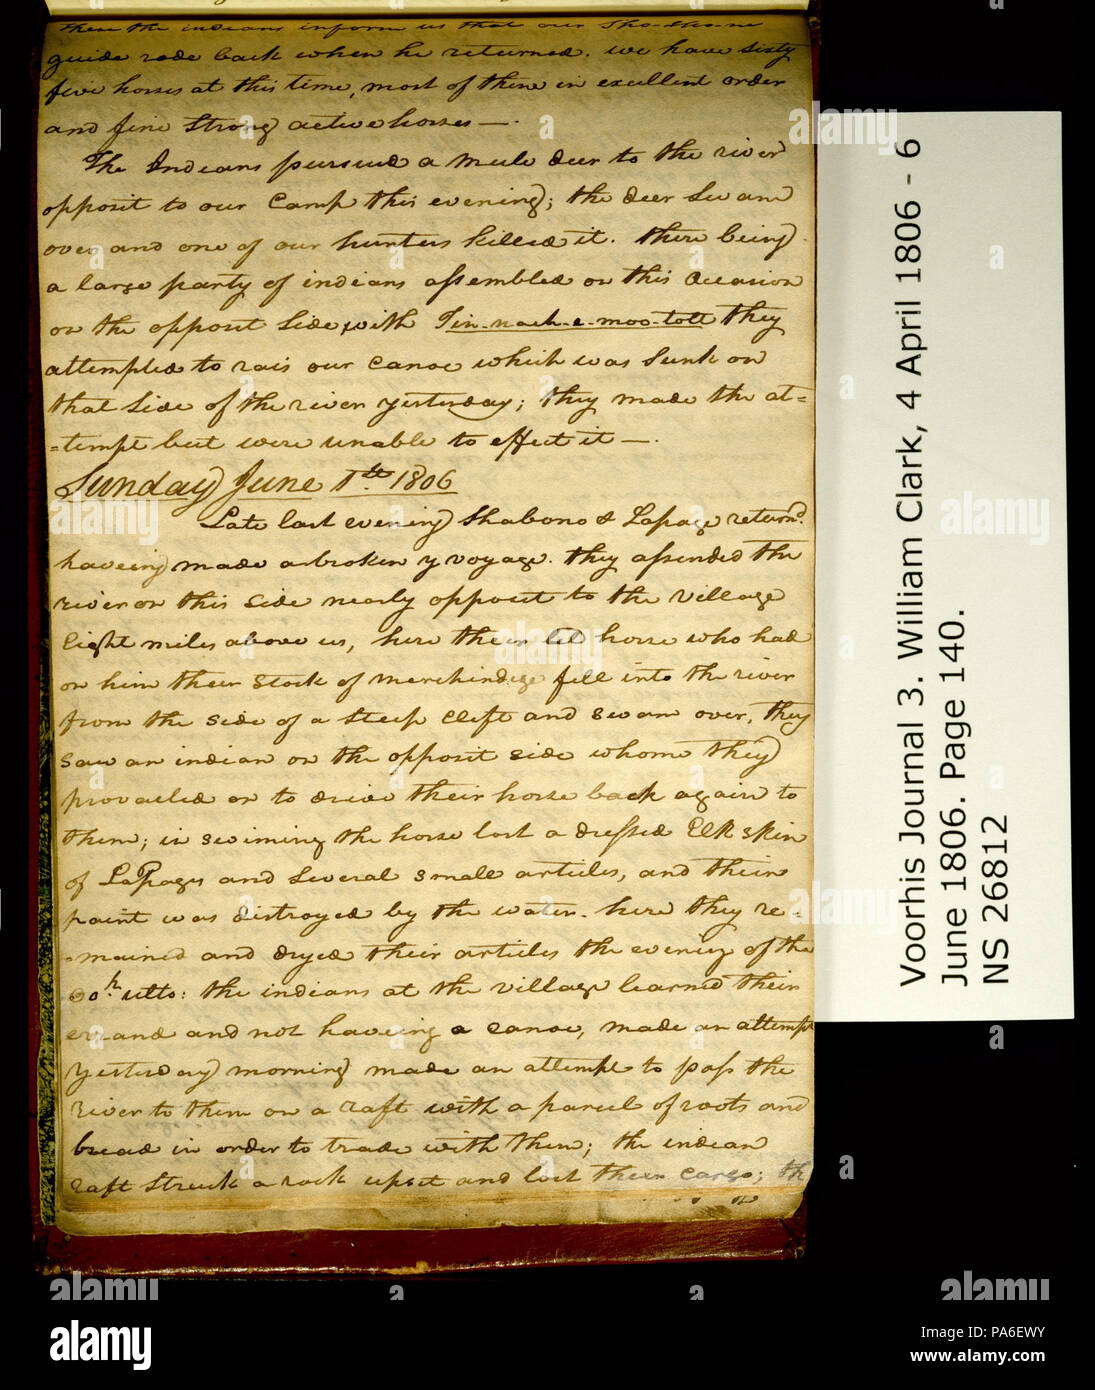 these the indians inform us that our Sho-sho-ne
guide rode back when he returned. we have sixty
five horses at this time, most of them in excellent order
and fine strong active horses —.
The Indians pursued a mule deer to the river
opposit to our Camp this evening; the deer Swam
over and one of our hunters killed it. there being
a large party of indians assembled on this occasion
on the opposit Side, with Tin-nach-e-moo-tolt they
attempted to rais our canoe which was Sunk on
that Side of the river yesterday; they made the at=
=tempt but were unable to effect it —.
Sunday June 1st 1806
Late last evening Shabono & Lapage returnd.
haveing made a broken y voyage. they assended the
river on this Side nearly opposit to the Village
Eight miles above us, here their led horse who had
on him their Stock of merchindize fell into the river
from the Side of a steep Clift and swam over, they
saw an indian on the opposit side whome they
provailed on to drive their horse back again to
them; in swiming the horse lost a dressed Elk skin
of LaPages and Several small articles, and their
paint was distroyed by the water. here they re-
-mained and dryed their articles the evening of the
30th ulto: the indians at the village learned their
errand and not haveing a canoe, made an attempt
yesterday morning made an attempt to pass the
river to them on a raft with a parcel of roots and
bread in order to trade with them; the indian
raft Struck a rock upset and lost their cargo; th
Voorhis Journal 3. William Clark, 4 April 1806 - 6
June 1806. Page 140.
NS 26812
alamy
a
alamy
www.alamy.com
Image ID: PA6EWY